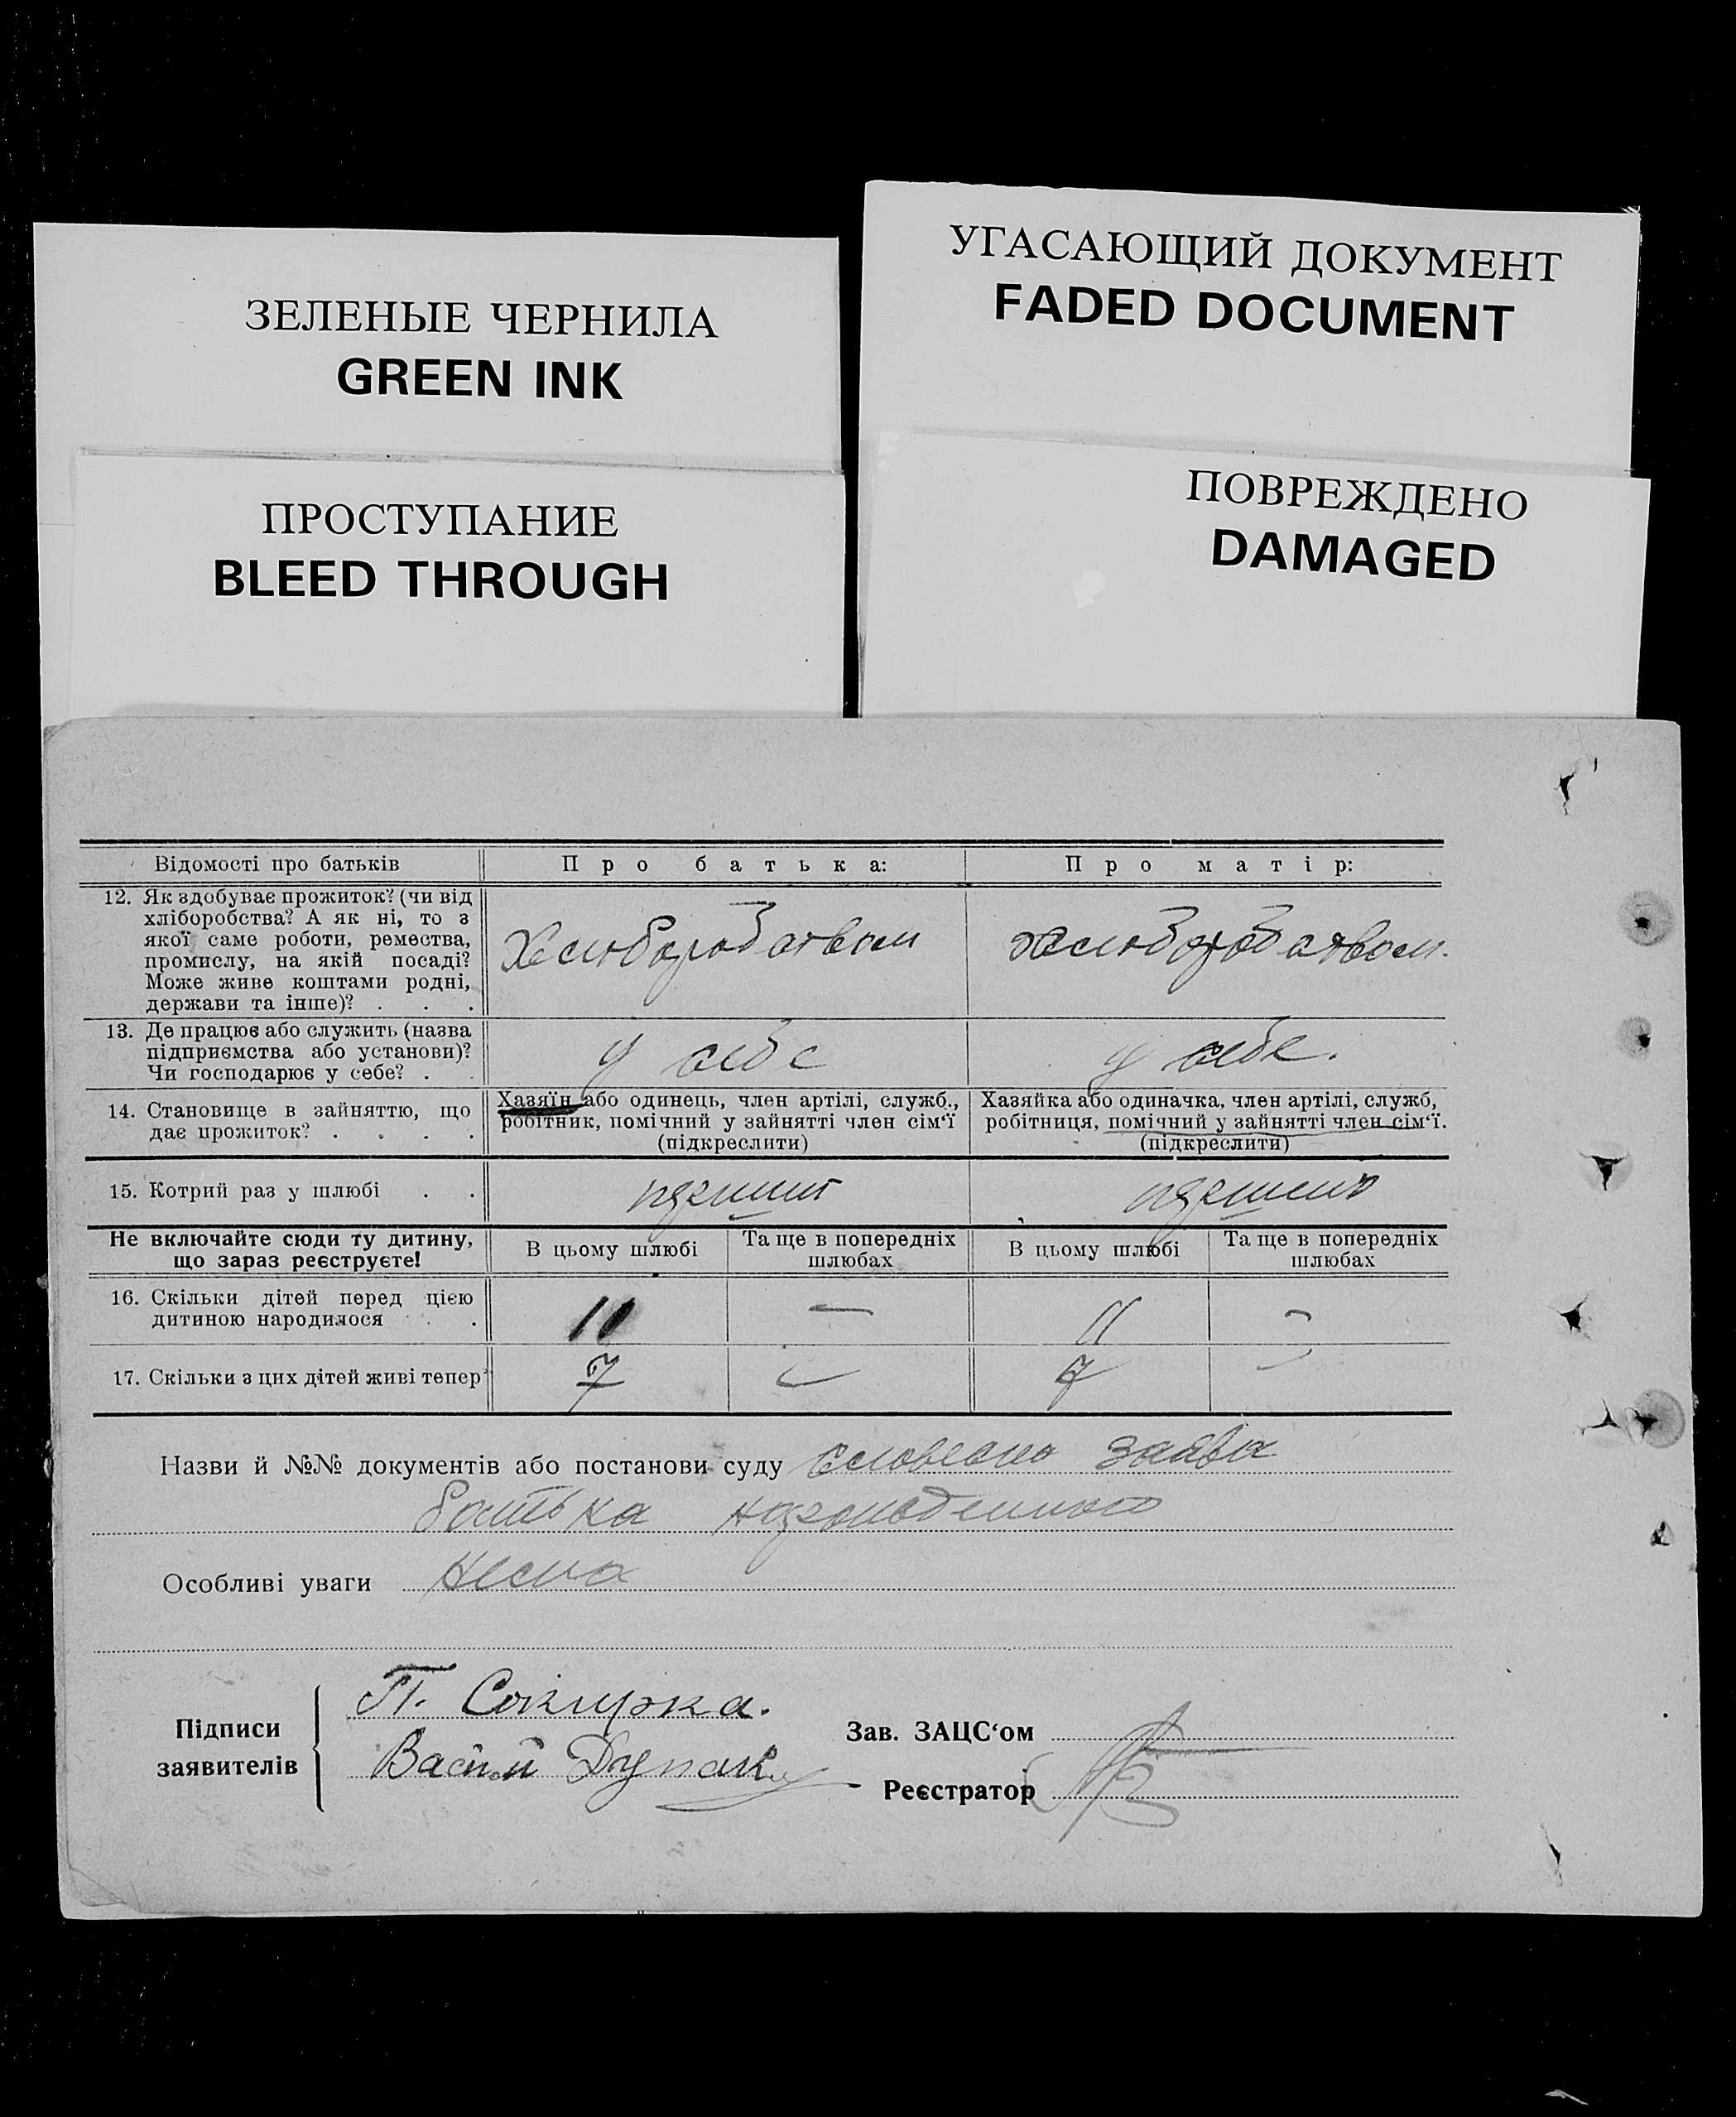 ЗЕЛЕНЫЕ ЧЕРНИЛА
GREEN INK
УГАСАЮЩИЙ ДОКУМЕНТ
FADED DOCUMENT
ПРОСТУПАНИЕ
BLEED THROUGH
ПОВРЕЖДЕНО
DAMAGED
Відомості про батьків
Про батька:
Про матір:
12. Як здобуває прожиток? (чи від
хліборобства? А як ні, то з
якої саме роботи, ремества,
промислу, на якій посаді?
Може живе коштами родні,
держави та інше)? . . .
13. Де працює або служить (назва
підприємства або установи)?
Чи господарює у себе? . .
у себе
у себе.
14. Становище в зайняттю, що
дає прожиток? . . . .
Хазяїн або одинець, член артілі, служб.,
робітник, помічний у зайнятті член сім'ї
(підкреслити)
Хазяйка або одиначка, член артілі, служб,
робітниця, помічний у зайнятті член сім'ї.
(підкреслити)
15. Котрий раз у шлюбі . .
Не включайте сюди ту дитину,
що зараз реєструєте!
В цьому шлюбі
Та ще в попередніх
шлюбах
В цьому шлюбі
Та ще в попередніх
шлюбах
16. Скільки дітей перед цією
дитиною народилося . .
11
—
11
—
17. Скільки з цих дітей живі тепер
7
—
7
—
Назви й №№ документів або постанови суду словесна заява
батька
Особливі уваги нема
Підписи
заявителів
П. Сокирка.
Зав. ЗАЦС'ом
Реєстратор